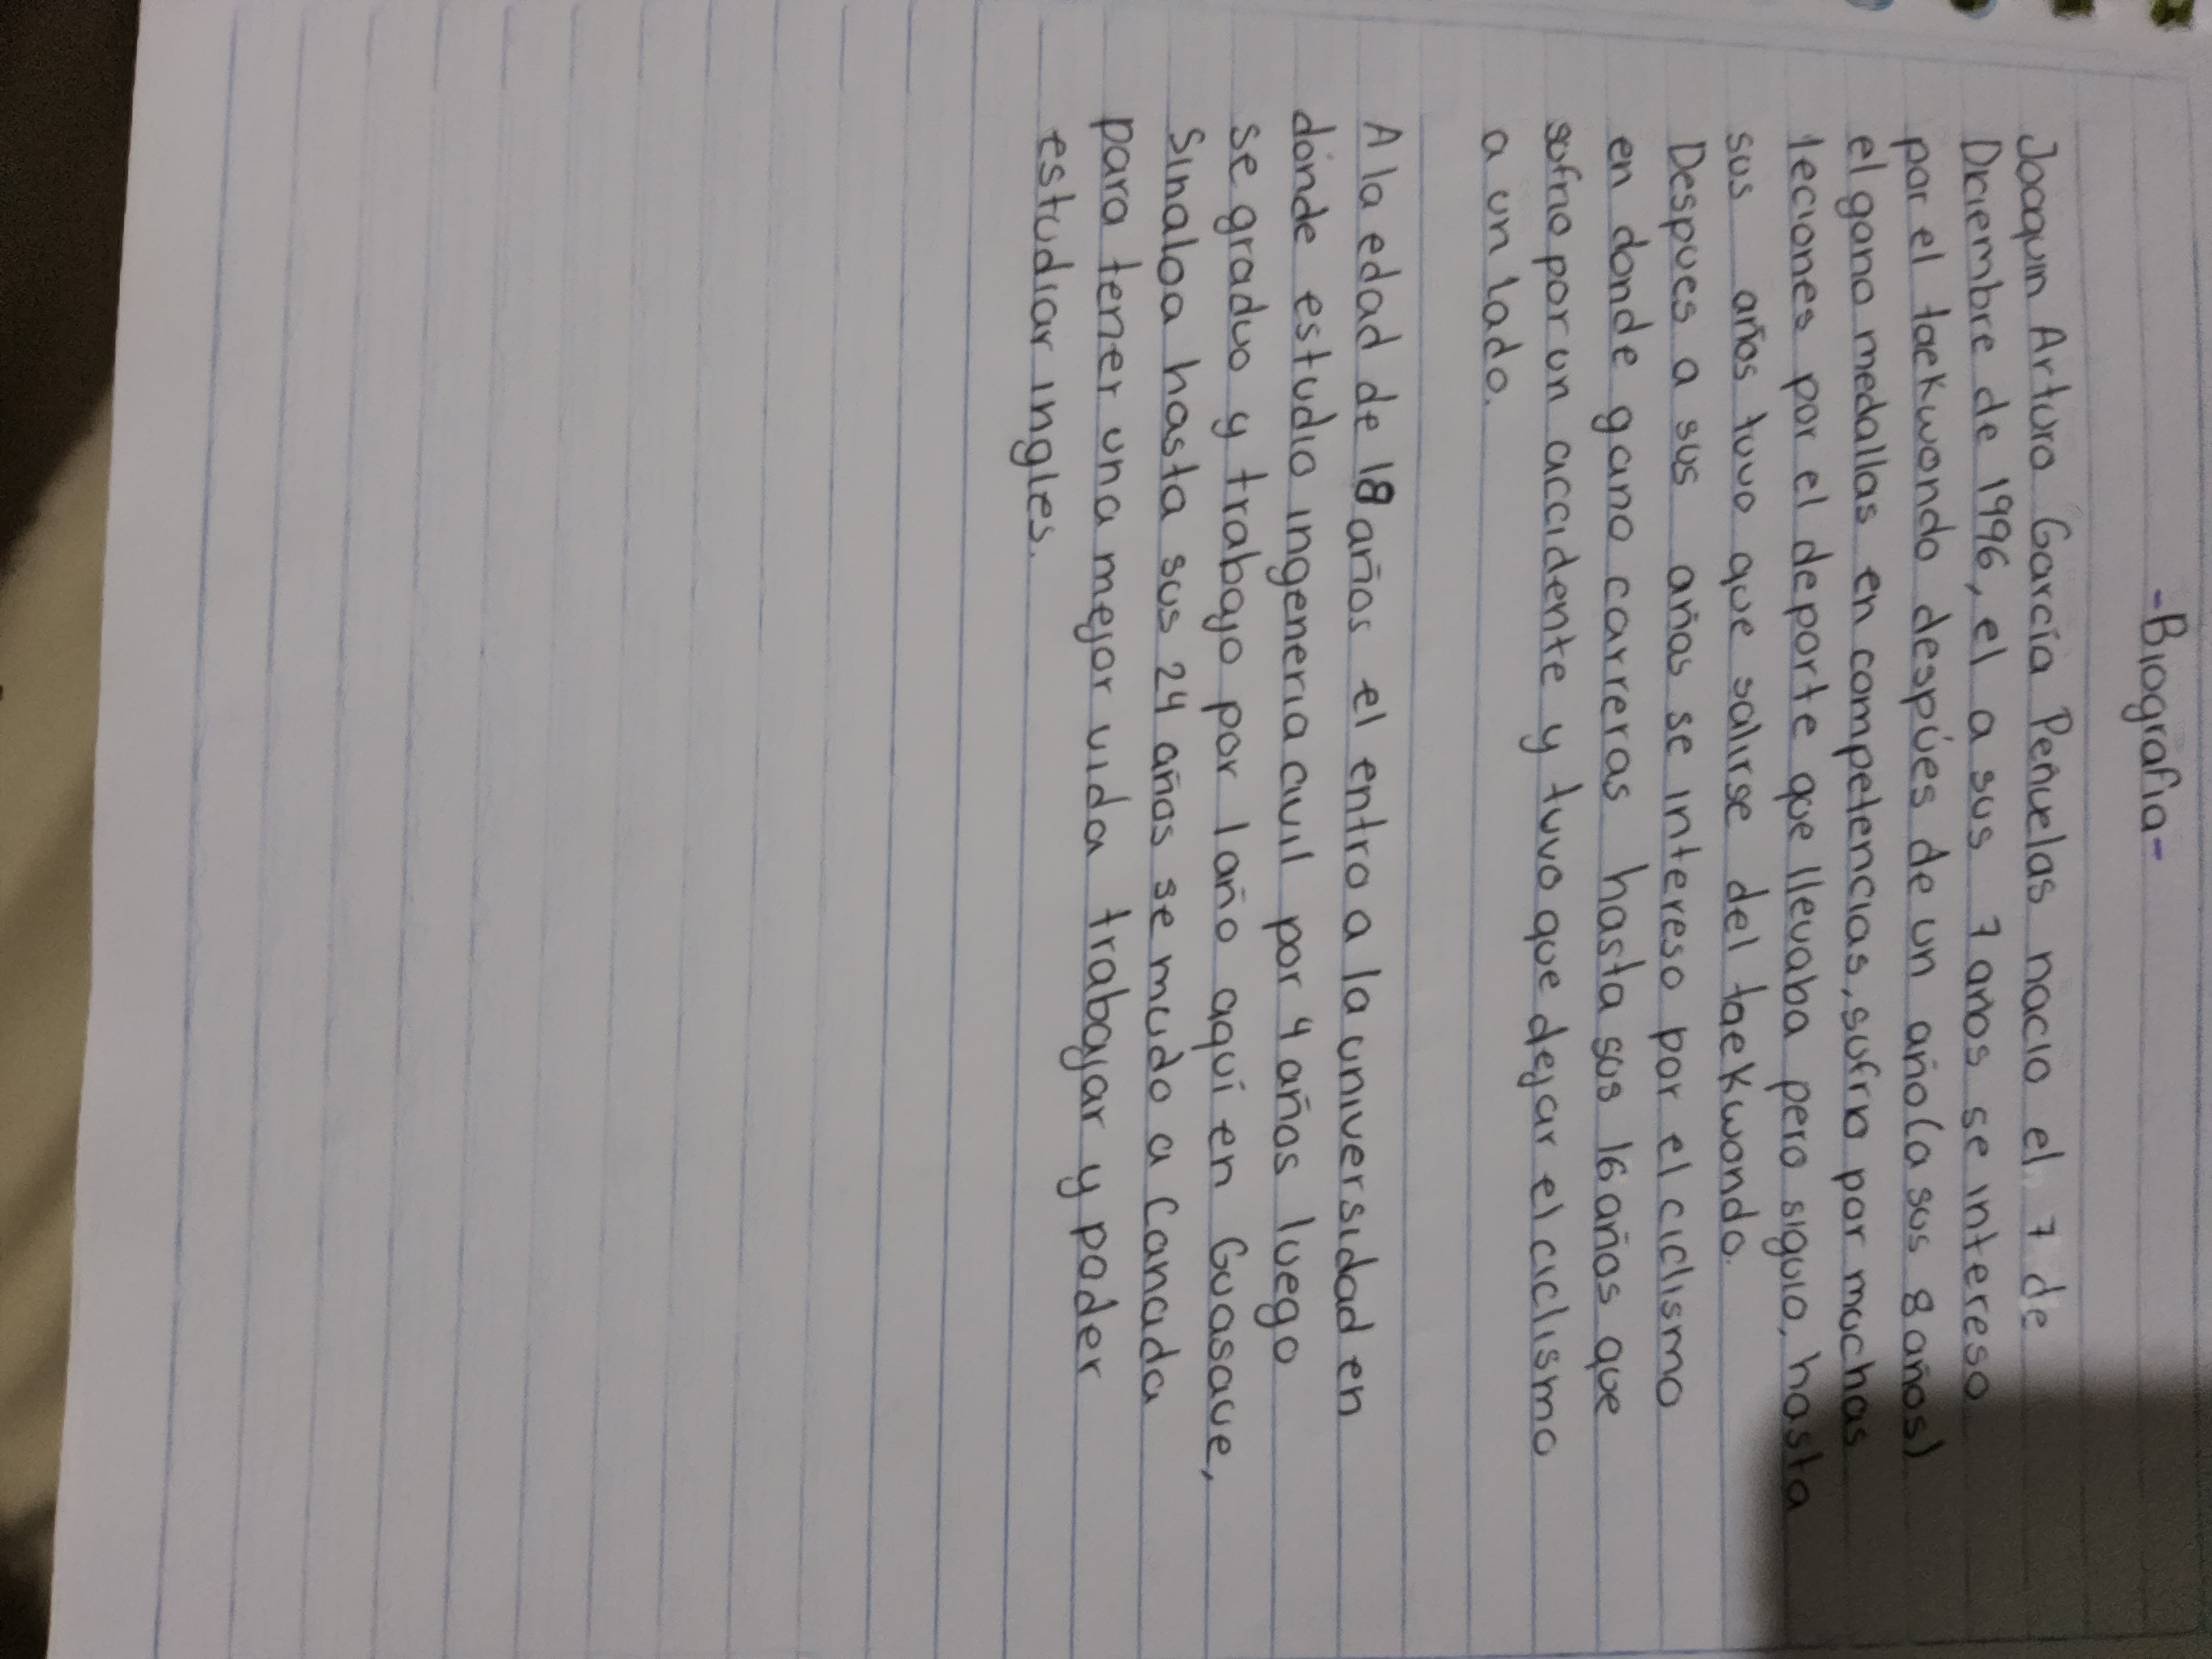 -Biografia-
Joaquin Arturo García Peñuelas nacio el 7 de
Diciembre de 1996, el a sus 7 años se intereso
por el taekwondo despúes de un año(a sus 8 años)
el gano medallas en competencias, sufrio por muchas
leciones por el deporte que llevaba pero siguio, hasta
sus años tuvo que salirse del taekwondo.
Despues a sus años se intereso por el ciclismo
en donde gano carreras hasta sus 16 años que
sofrio por un accidente y tuvo que dejar el ciclismo
a un lado.
A la edad de 18 años el entro a la universidad en
dónde estudio ingeneria civil por 4 años luego
se graduo y trabajo por 1 año aquí en Guasave,
Sinaloa hasta sus 24 años se mudo a Canada
para tener una mejor vida trabajar y poder
estudiar ingles.